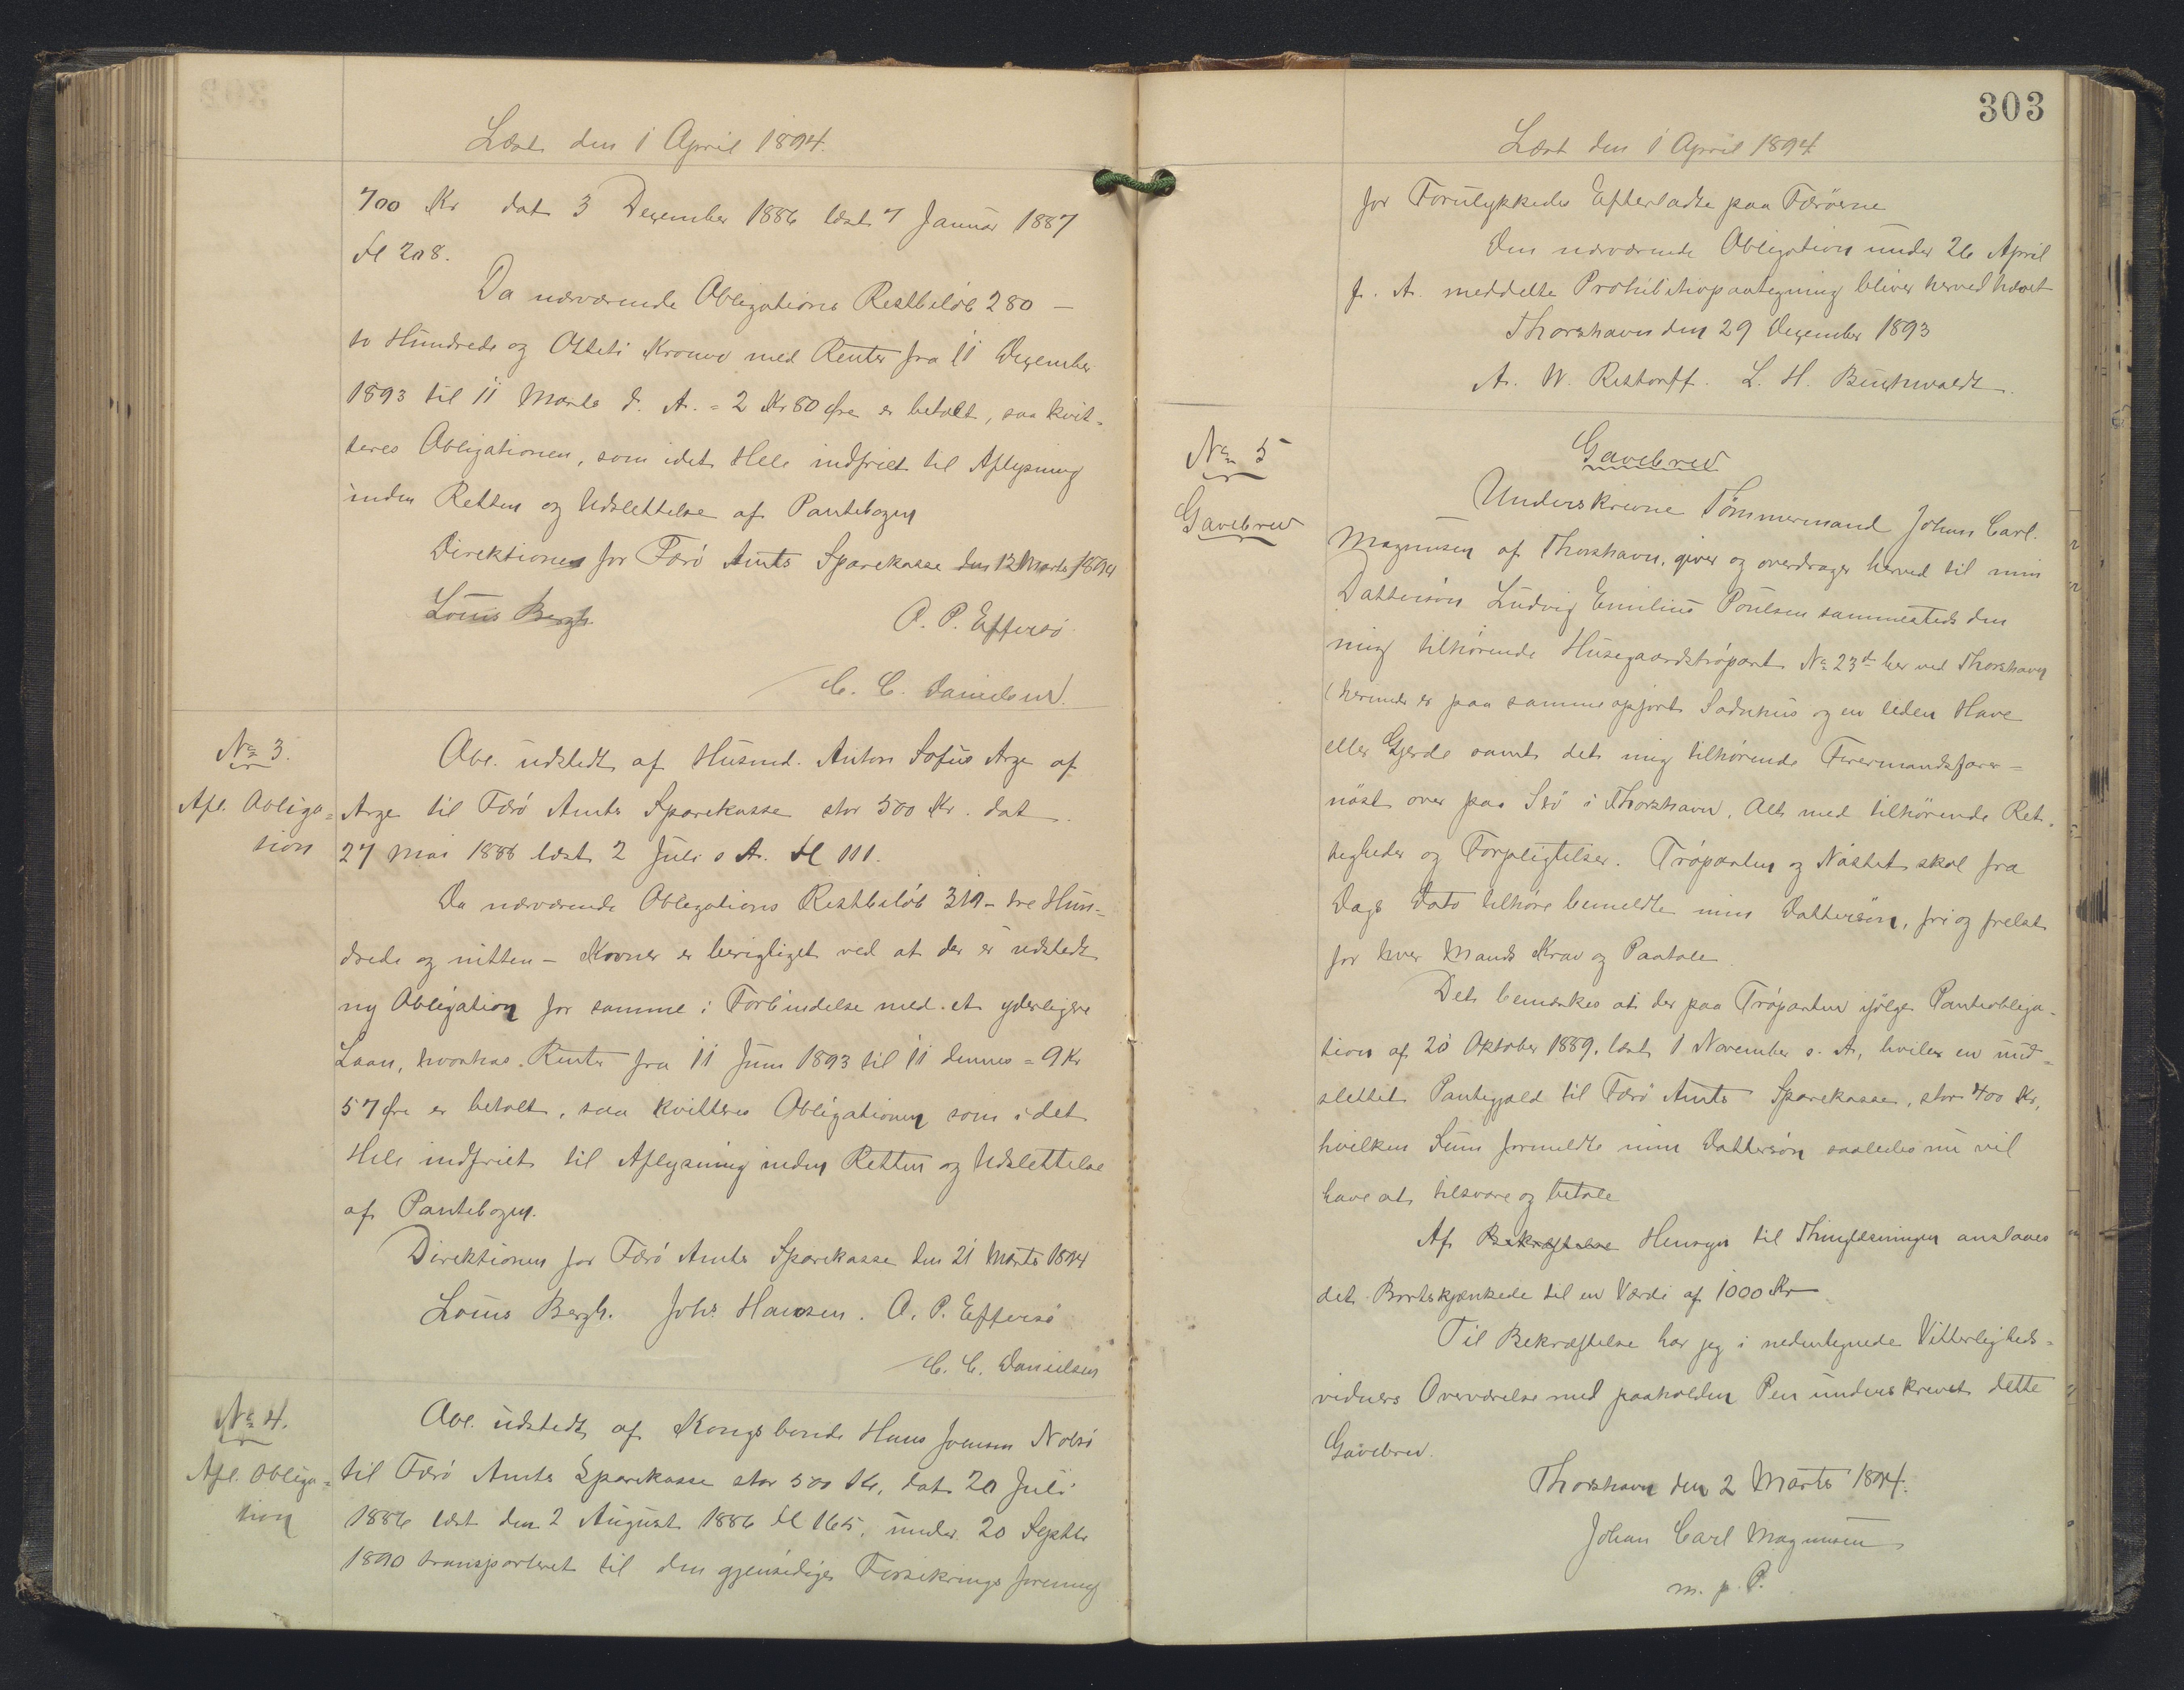 Læst den 1 April 1894.
700 Kr dat 3 Dezember 1886 læst 7 Januar 1887
fl 208.
Da nærværende Obligations Restbeløb 280 –
to Hundrede og Otteti Kroner med Renter fra 11 Dezember
1893 til 11 Marts d. A. = 2 Kr 80 Øre er betalt, saa kvit-
teres Obligationen, som idet Hele indfriet til Aflysning
inden Retten og Udslettelse af Pantebogen
Direktionen for Færø Amts Sparekasse den 12 Marts 1894
Louis Bergh. O. P. Effersø.
C. C. Danielsen.
No 3.
Afl. Obliga=
tion
Obl. udstedt af Husmd. Anton Sofus Arge af
Arge til Færø Amts Sparekasse stor 500 Kr. dat.
27 Mai 1888 læst 2 Juli s A. fl 111.
Da nærværende Obligations Restbeløb 319 – tre Hun-
drede og nitten – Kroner er berigtiget ved at der er udstedt
ny Obligation for samme i Forbindelse med et yderligere
Laan, hvorhos Renter fra 11 Juni 1893 til 11 dennes = 9 Kr
57 Øre er betalt, saa kvitteres Obligationen som i det
Hele indfriet til Aflysning inden Retten og Udslettelse
af Pantebogen.
Direktionen for Færø Amts Sparekasse den 21 Marts 1894
Louis Bergh. Johs. Hansen. O. P. Effersø
C. C. Danielsen
No 4.
Afl. Obliga=
tion
Obl. udstedt af Kongsbonde Hans Joensen Nolsø
til Færø Amts Sparekasse stor 500 Kr, dat 20 Juli
1886 læst den 2 August 1886 fl 165, under 20 Septbr
1890 transporteret til den gjensidige Forsikrings forening
303
Læst den 1 April 1894
for Forulykkedes Efterladte paa Færøerne
Den nærværende Obligation under 26 April
f. A. meddelte Prohibitivpaategning bliver herved hævet
Thorshavn den 29 Dezember 1893
A. W. Restorff. L. H. Buchwaldt.
No 5
Gavebrev
Gavebrev
Underskrevne Tømmermand Johan Carl
Magnusen af Thorshavn, giver og overdrager herved til min
Dattersøn Ludvig Emilius Poulsen sammesteds den
mig tilhørende Husegaardstrøpart No 23d her ved Thorshavn
(herunder er paa samme opført Sadnhus og en liden Have
eller Gjerde samt det mig tilhørende Firermandsfarer=
nøst over paa Stø i Thorshavn. Alt med tilhørende Ret-
tigheder og Forpligtelser. Trøparten og Nøstet skal fra
Dags Dato tilhøre bemeldte min Dattersøn, fri og frelst
for hver Mands Krav og Paatale
Det bemærkes at der paa Trøparten ifølge Pantobliga-
tion af 20 Oktober 1889, læst 1 November s. A, hviler en uud=
slettet Pantegjæld til Færø Amts Sparekasse, stor 400 Kr,
hvilken Sum formeldte min Dattersøn saaledes nu vil
have at tilsvare og betale
Af Bekræftelse Hensyn til Thinglæsningen anslaaes
det Bortskjænkede til en Værdi af 1000 Kr
Til Bekræftelse har jeg i nedentegnede Vitterligheds=
vidners Overværelse med paaholden Pen underskrevet dette
Gavebrev.
Thorshavn den 2 Marts 1894.
Johan Carl Magnusen
m. p. P.